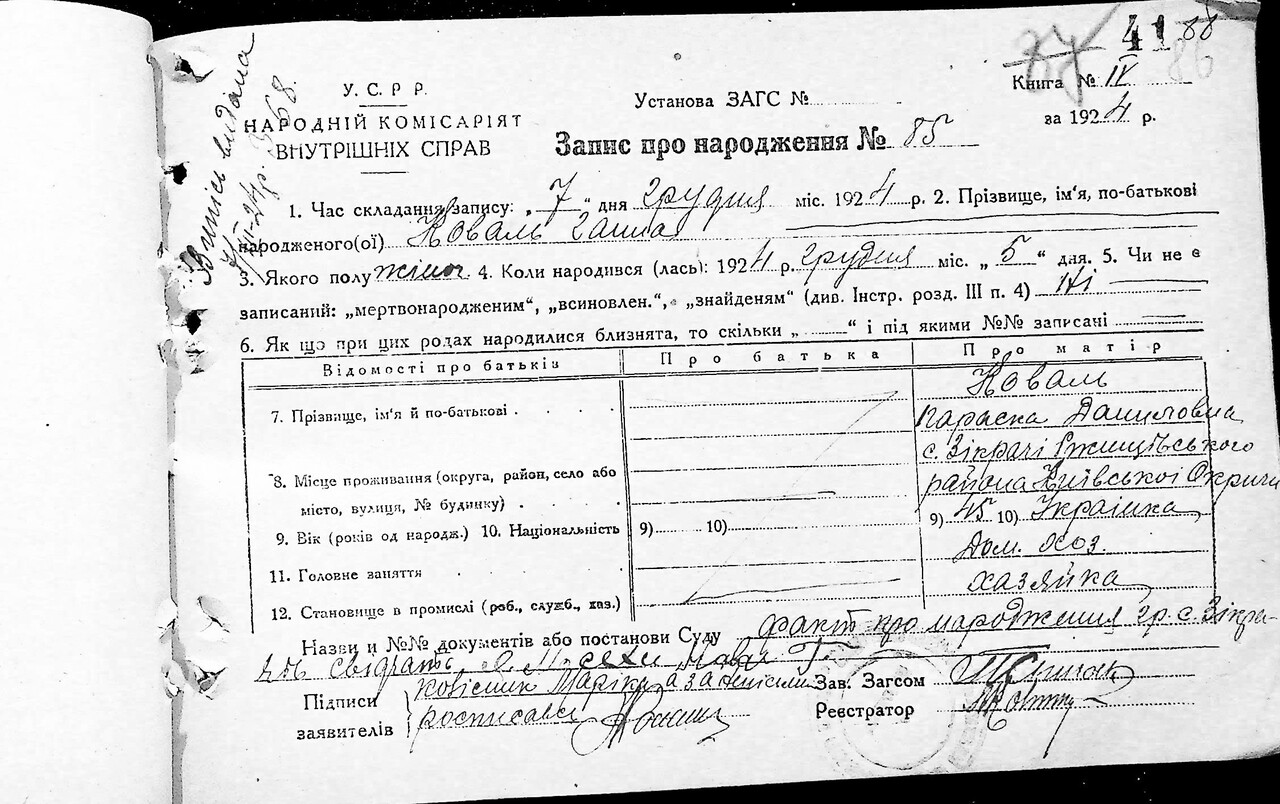 41 88
86
У. С. Р Р.
НАРОДНІЙ КОМІСАРІЯТ
ВНУТРІШНІХ СПРАВ
Випись видана
Установа ЗАГС №
Книга № IV
за 1924 р.
Запис про народження № 85
1. Час складання запису: „7“ дня грудня міс. 1924 р. 2. Прізвище, ім'я, по-батькові
народженого(ої) Коваль Ганна
3. Якого полу жіноч 4. Коли народився (лась): 1924 р. грудня міс. „5“ дня. 5. Чи не є
записаний: „мертвонародженим“, „всиновлен.“, „знайденям“ (див. Інстр. розд. III п. 4) Ні
6. Як що при цих родах народилися близнята, то скільки „ “ і під якими №№ записані
Відомості про батьків Про батька Про матір
7. Прізвище, ім'я й по-батькові Коваль
Параска Даниловна
8. Місце проживання (округа, район, село або
місто, вулиця, № будинку) с. Зікрачі Ржищівського
района Київської Округи
9. Вік (років од народж.) 10. Національність 9) 10) 9) 45 10) Українка
11. Головне заняття Дом. хоз.
12. Становище в промислі (роб., служб., хаз.) хазяйка
Назви и №№ документів або постанови Суду факт про народження гр. с. Зікра-
свідчать
Підписи
заявителів
росписався
Зав. Загсом
Реєстратор